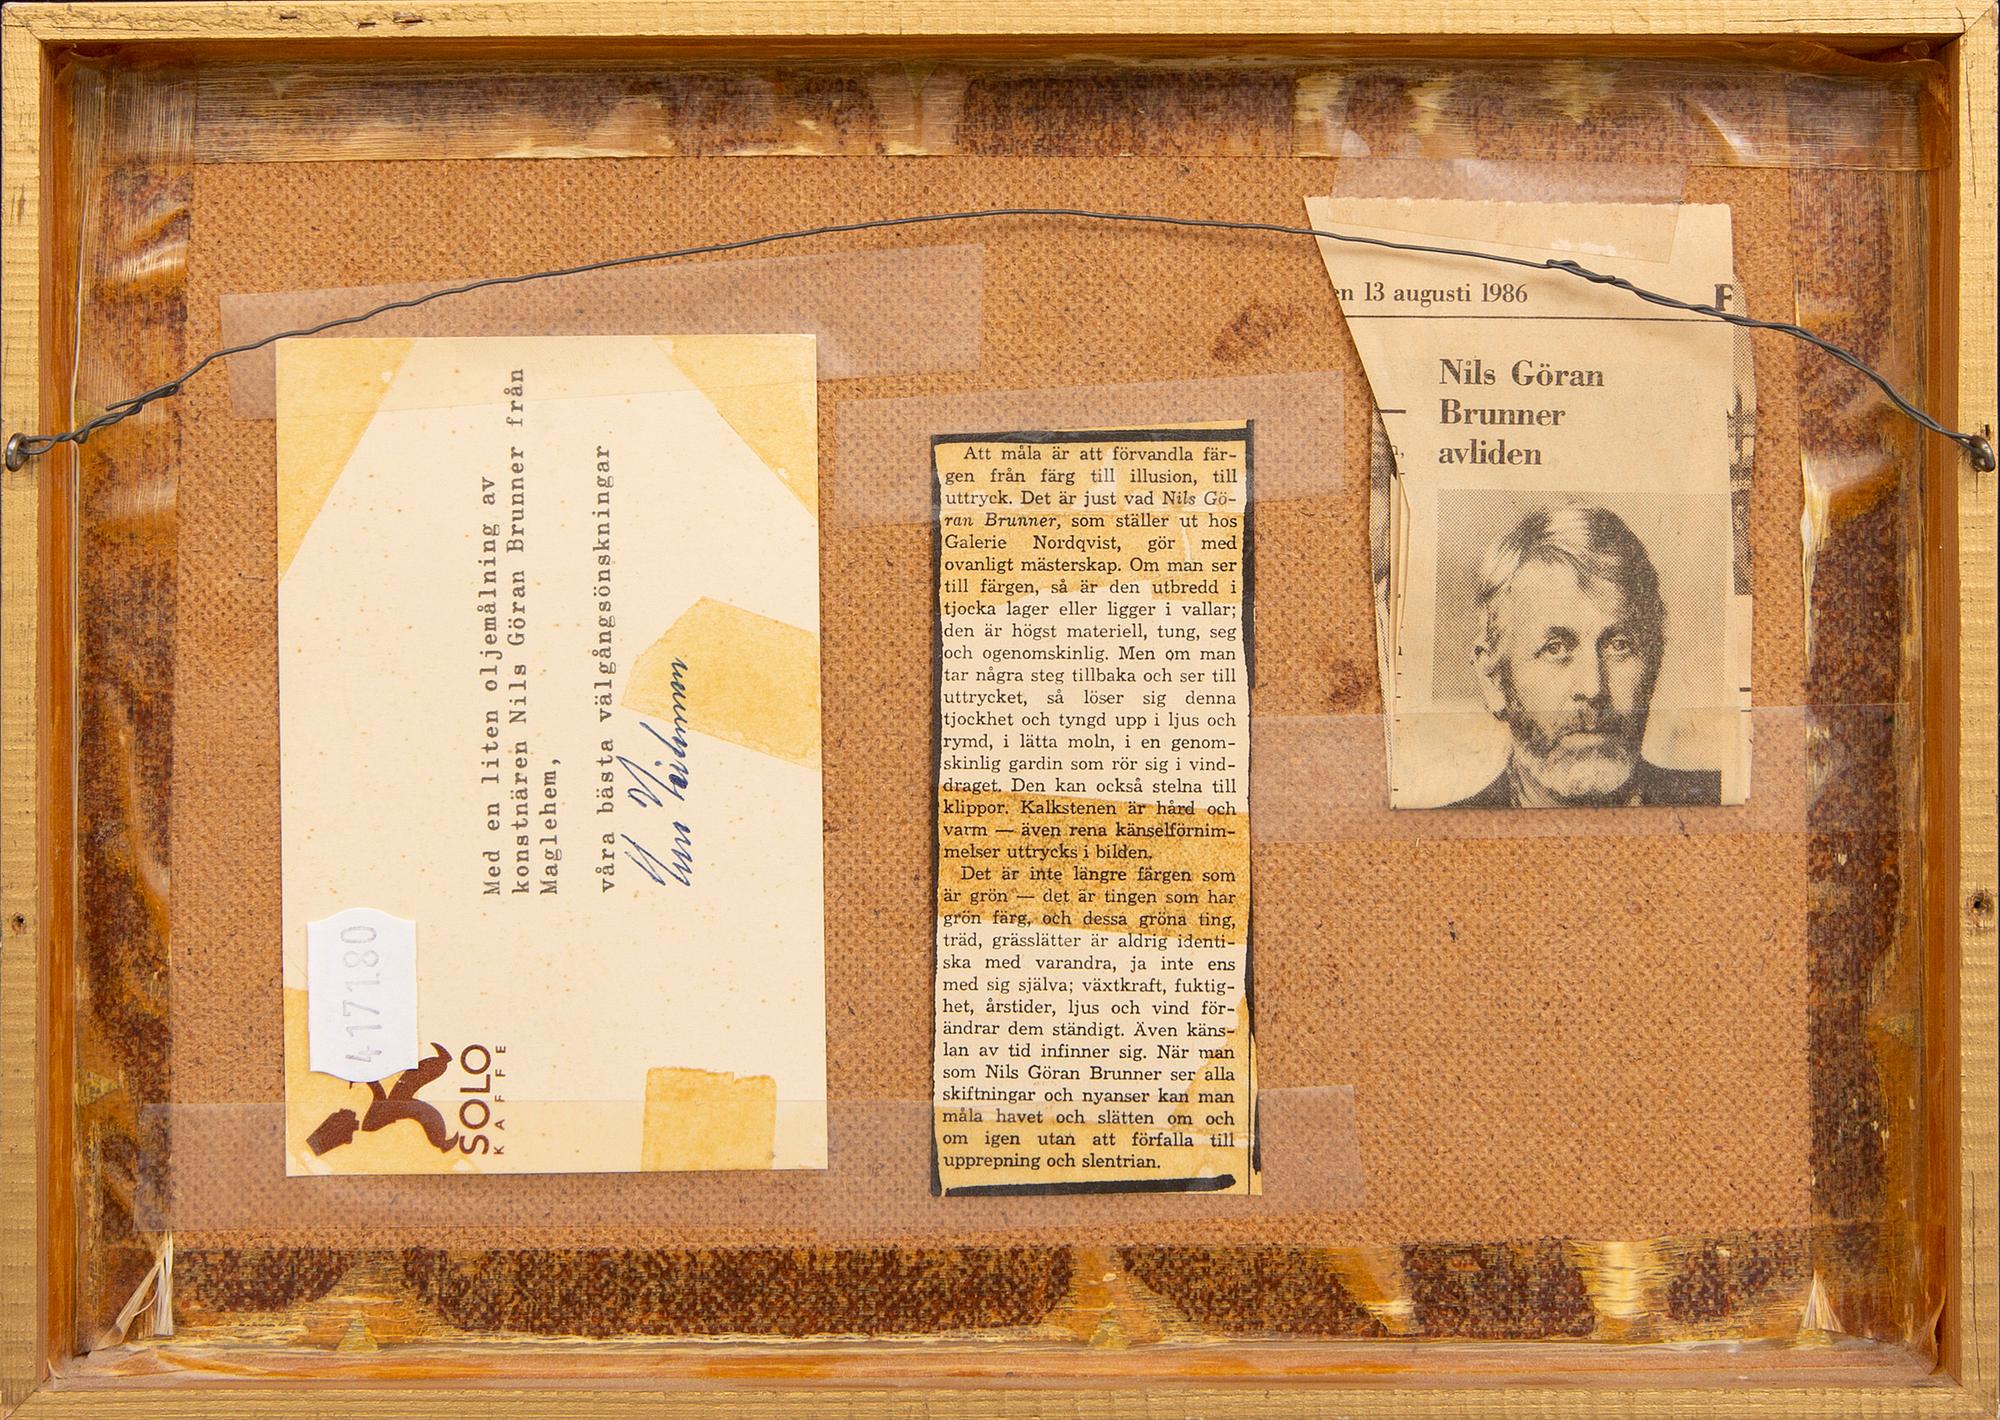 Med en liten oljemålning av
konstnären Nils Göran Brunner från
Maglehem,
våra bästa välgångsönskningar
4171.80
SOLO
KAFFE
Att måla är att förvandla fär-
gen från färg till illusion, till
uttryck. Det är just vad Nils Gö-
ran Brunner, som ställer ut hos
Galerie Nordqvist, gör med
ovanligt mästerskap. Om man ser
till färgen, så är den utbredd i
tjocka lager eller ligger i vallar;
den är högst materiell, tung, seg
och ogenomskinlig. Men om man
tar några steg tillbaka och ser till
uttrycket, så löser sig denna
tjockhet och tyngd upp i ljus och
rymd, i lätta moln, i en genom-
skinlig gardin som rör sig i vind-
draget. Den kan också stelna till
klippor. Kalkstenen är hård och
varm — även rena känselförnim-
melser uttrycks i bilden.
Det är inte längre färgen som
är grön — det är tingen som har
grön färg, och dessa gröna ting,
träd, grässlätter är aldrig identi-
ska med varandra, ja inte ens
med sig själva; växtkraft, fuktig-
het, årstider, ljus och vind för-
ändrar dem ständigt. Även käns-
lan av tid infinner sig. När man
som Nils Göran Brunner ser alla
skiftningar och nyanser kan man
måla havet och slätten om och
om igen utan att förfalla till
upprepning och slentrian.
en 13 augusti 1986
F
Nils Göran
Brunner
avliden